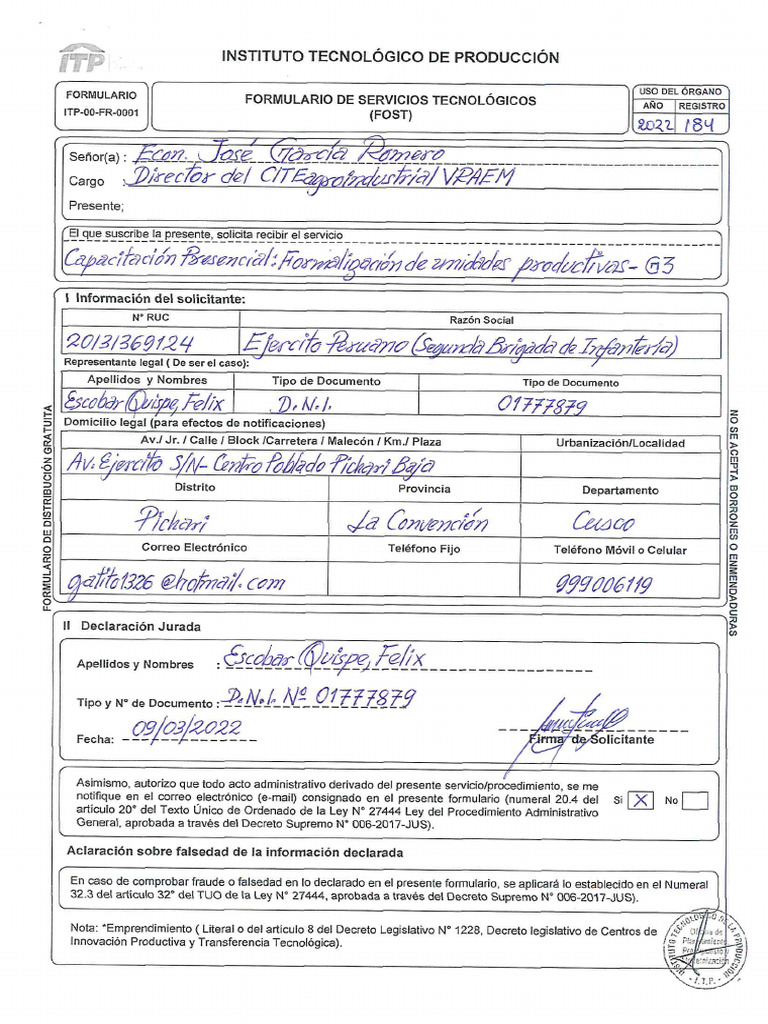 ITP
INSTITUTO TECNOLÓGICO DE PRODUCCIÓN
FORMULARIO
ITP-00-FR-0001
FORMULARIO DE SERVICIOS TECNOLÓGICOS
(FOST)
USO DEL ÓRGANO
AÑO REGISTRO
2022 184
Señor(a) : Econ. José García Romero
Cargo : Director del CITEagroindustrial VRAEM
Presente;
El que suscribe la presente, solicita recibir el servicio
Capacitación Presencial: Formalización de unidades productivas - G3
I Información del solicitante:
N° RUC Razón Social
20131369124 Ejercito Peruano (Segunda Brigada de Infantería)
Representante legal ( De ser el caso):
Apellidos y Nombres Tipo de Documento Tipo de Documento
Escobar Quispe, Felix D.N.I. 01777879
Domicilio legal (para efectos de notificaciones)
Av./ Jr. / Calle / Block /Carretera / Malecón / Km./ Plaza Urbanización/Localidad
Av. Ejercito S/N- Centro Poblado Pichari Baja
Distrito Provincia Departamento
Pichari La Convención Cusco
Correo Electrónico Teléfono Fijo Teléfono Móvil o Celular
gatito1326@hotmail.com 999006119
FORMULARIO DE DISTRIBUCIÓN GRATUITA
NO SE ACEPTA BORRONES O ENMENDADURAS
II Declaración Jurada
Apellidos y Nombres : Escobar Quispe, Felix
Tipo y N° de Documento : D.N.I. Nº 01777879
Fecha: 09/03/2022
Firma de Solicitante
Asimismo, autorizo que todo acto administrativo derivado del presente servicio/procedimiento, se me
notifique en el correo electrónico (e-mail) consignado en el presente formulario (numeral 20.4 del
articulo 20° del Texto Único de Ordenado de la Ley N° 27444 Ley del Procedimiento Administrativo
General, aprobada a través del Decreto Supremo N° 006-2017-JUS).
Si X No
Aclaración sobre falsedad de la información declarada
En caso de comprobar fraude o falsedad en lo declarado en el presente formulario, se aplicará lo establecido en el Numeral
32.3 del articulo 32° del TUO de la Ley N° 27444, aprobada a través del Decreto Supremo N° 006-2017-JUS).
Nota: *Emprendimiento ( Literal o del artículo 8 del Decreto Legislativo N° 1228, Decreto legislativo de Centros de
Innovación Productiva y Transferencia Tecnológica).
INSTITUTO TECNOLOGICO DE LA PRODUCCIÓN
Oficina de
- I.T.P. -